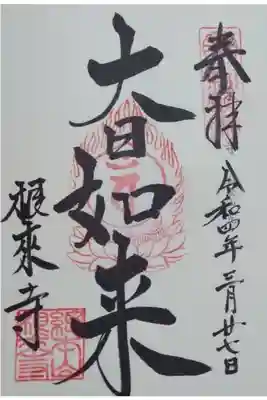 奉拝
令和四年三月廿七日
大日如来
根來寺